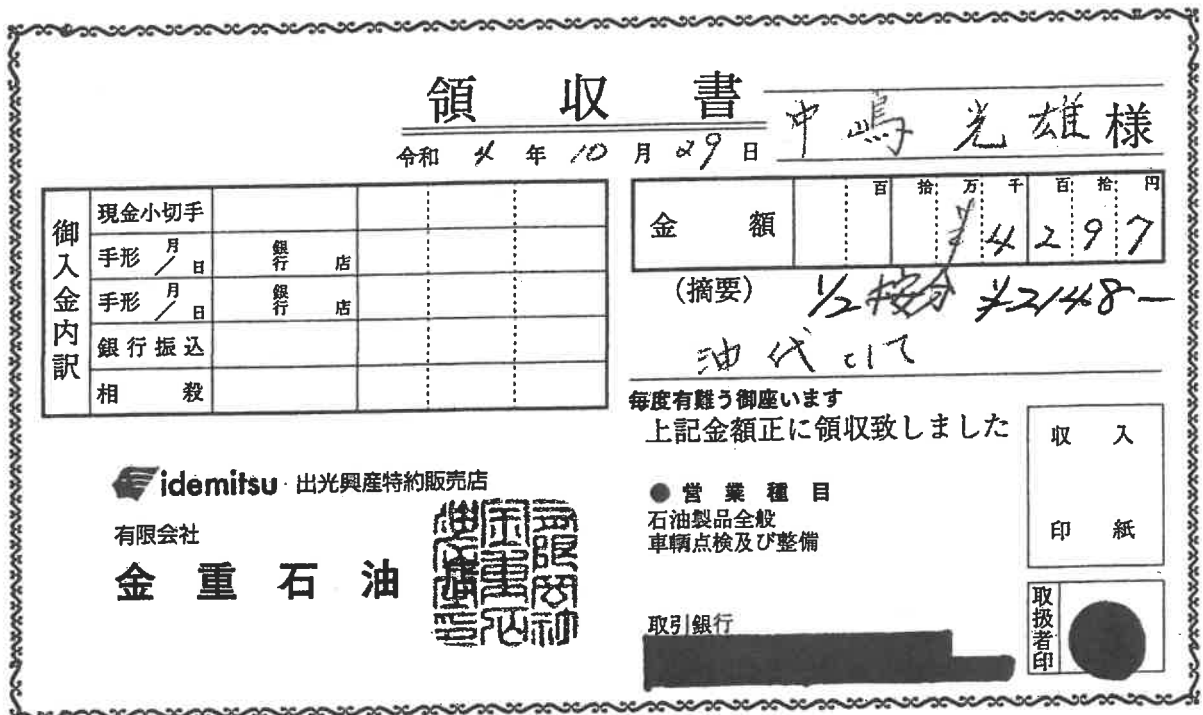 領収書
中嶋光雄様
令和4年10月29日
御入金内訳
現金小切手
手形 月/日 銀行 店
手形 月/日 銀行 店
銀行振込
相殺
金額 百拾万千百拾円
¥4297
(摘要) 1/2 按分 ¥2148-
油代として
毎度有難う御座います
上記金額正に領収致しました
収入
印紙
idemitsu 出光興産特約販売店
有限会社
金重石油店
●営業種目
石油製品全般
車輌点検及び整備
取引銀行
取扱者印